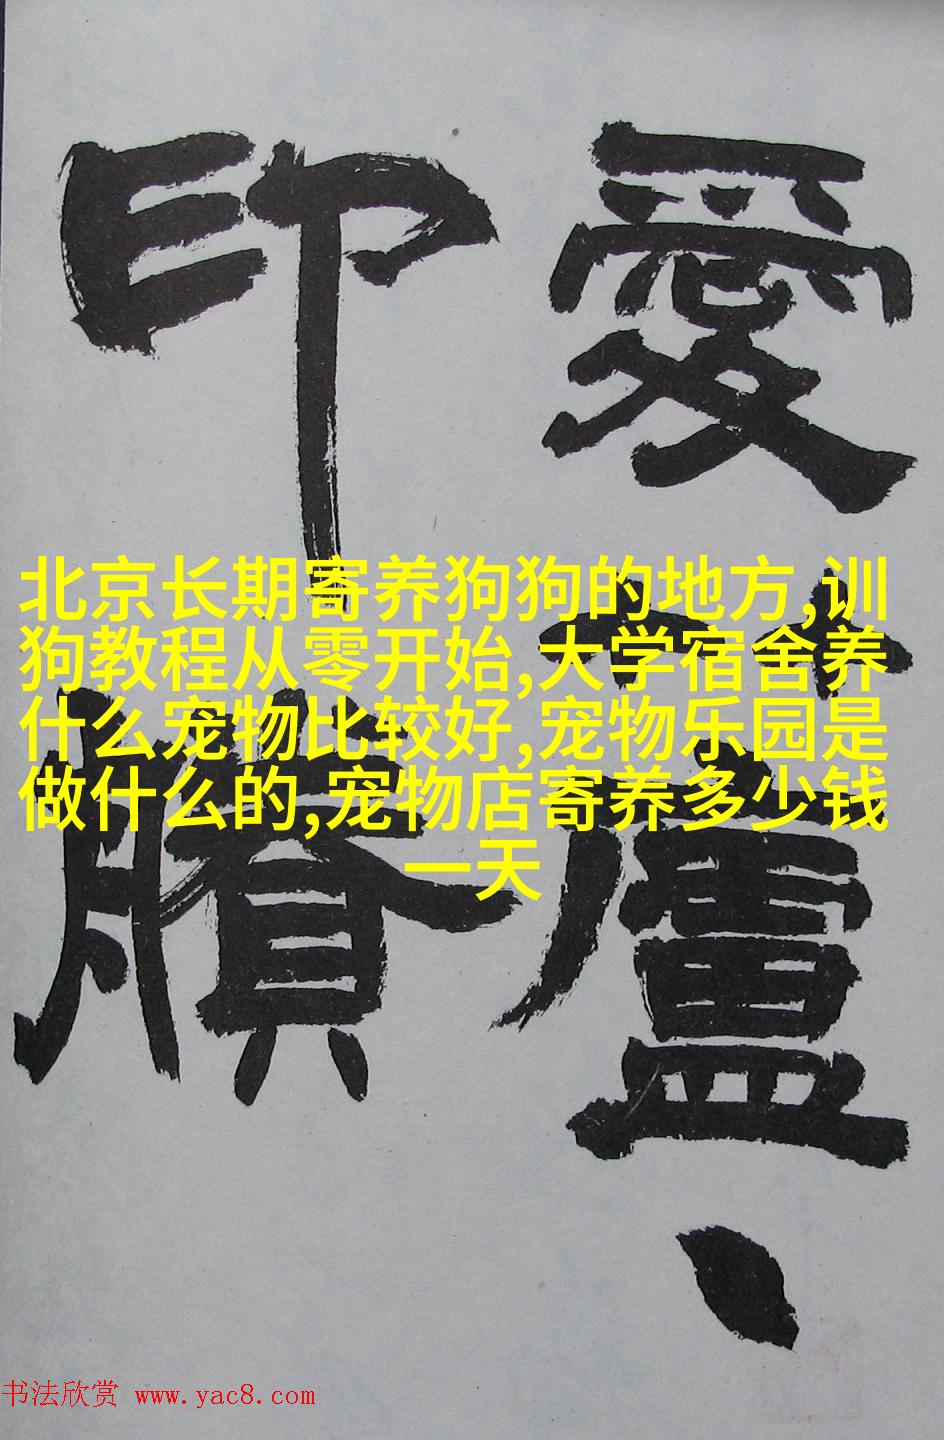 愛蘆、
印賸
北京长期寄养狗狗的地方,训
狗教程从零开始,大学宿舍养
什么宠物比较好,宠物乐园是
做什么的,宠物店寄养多少钱
一天
书法欣赏 www.yac8.com